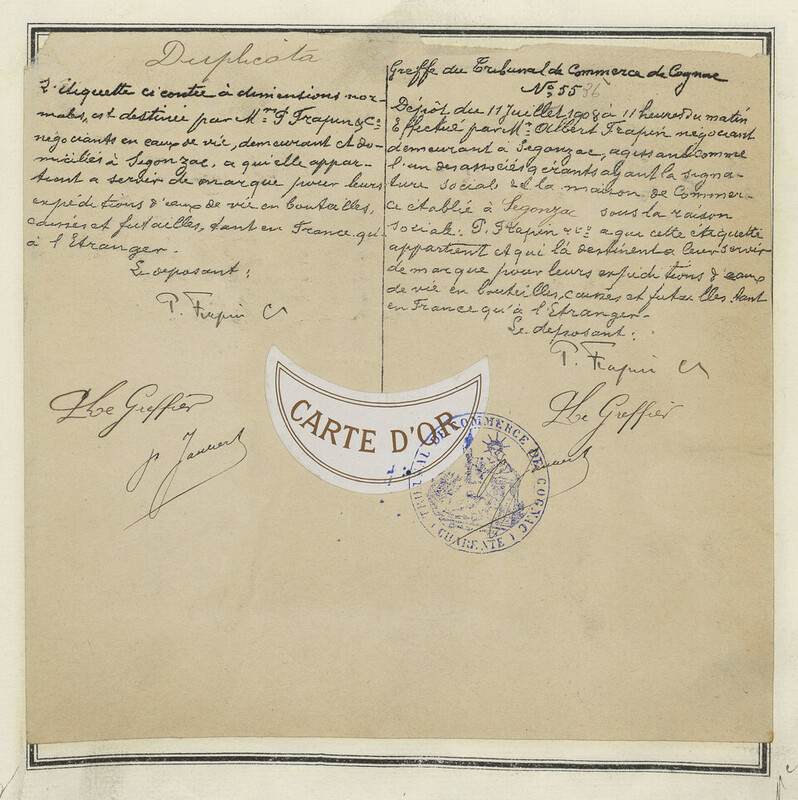 Duplicata
L'étiquette ci contre à dimensions nor-
males, est destinée par Mrs P. Frapin & Co
négociants en eaux de vie, demeurant et do-
miciliés à Segonzac, a qu'elle appar-
tient a servir de marque pour leurs
expéditions d'eaux de vie en bouteilles,
caisses et futailles, tant en France qu'
à l'Etranger.
Le déposant:
P. Frapin Co
Le Greffier
Greffe du Tribunal de Commerce de Cognac
No 5586
Dépôt du 11 Juillet 1908 à 11 heures du matin
Effectué par Mr Albert Frapin négociant
demeurant à Segonzac, agissant comme
l'un des associés gérants ayant la signa-
ture social de la maison de Commer-
ce établie à Segonzac sous la raison
sociale: P. Frapin & Co a qui cette étiquette
appartient et qui la destinent a leur servir
de marque pour leurs expéditions d'eaux
de vie en bouteilles, caisses et futailles tant
en France qu'à l'Etranger.
Le déposant:
P. Frapin Co
Le Greffier
CARTE D'OR
TRIBUNAL DE COMMERCE DE COGNAC
(CHARENTE)